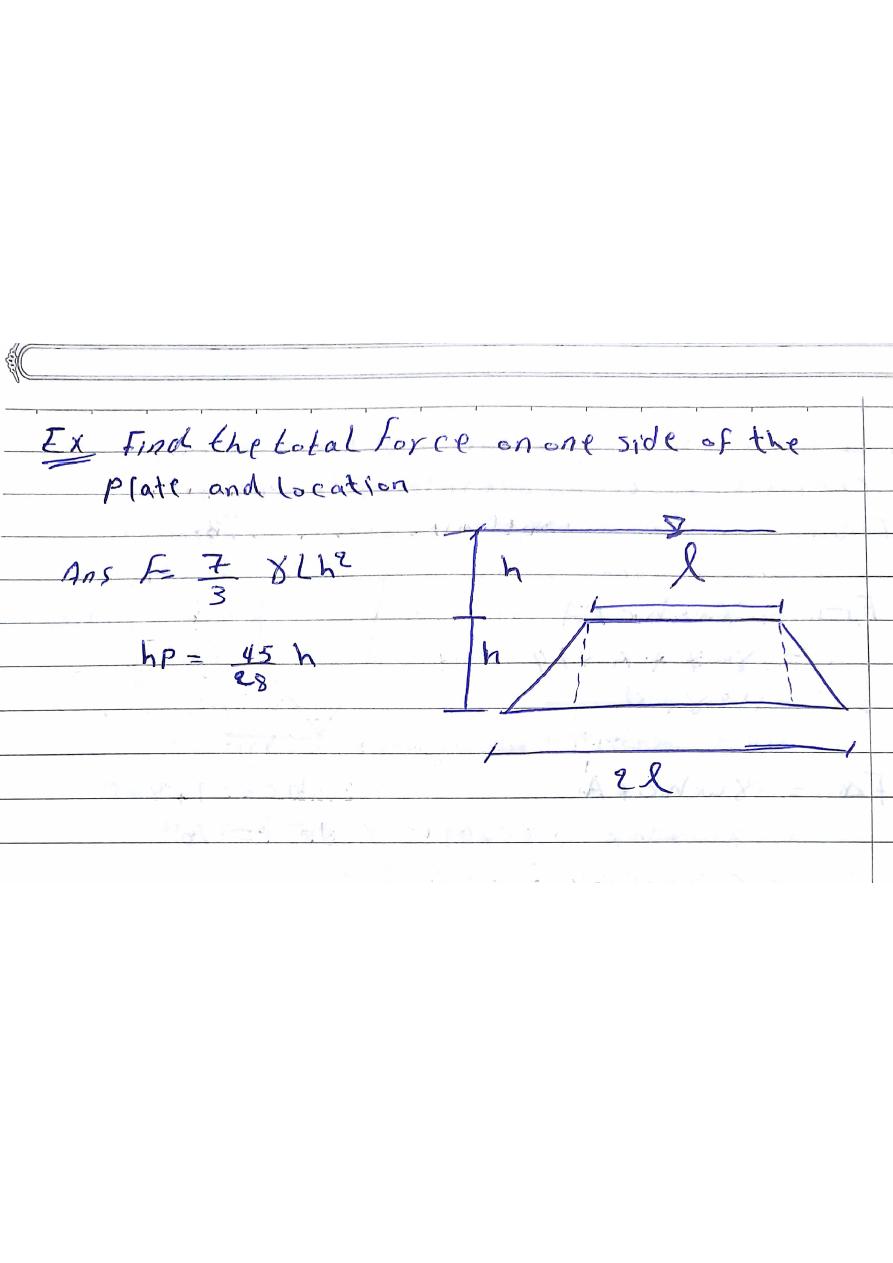 Ex Find the total force on one side of the
plate and location
Ans F= 7/3 γLh²
hp = 45/28 h
h
l
h
2l